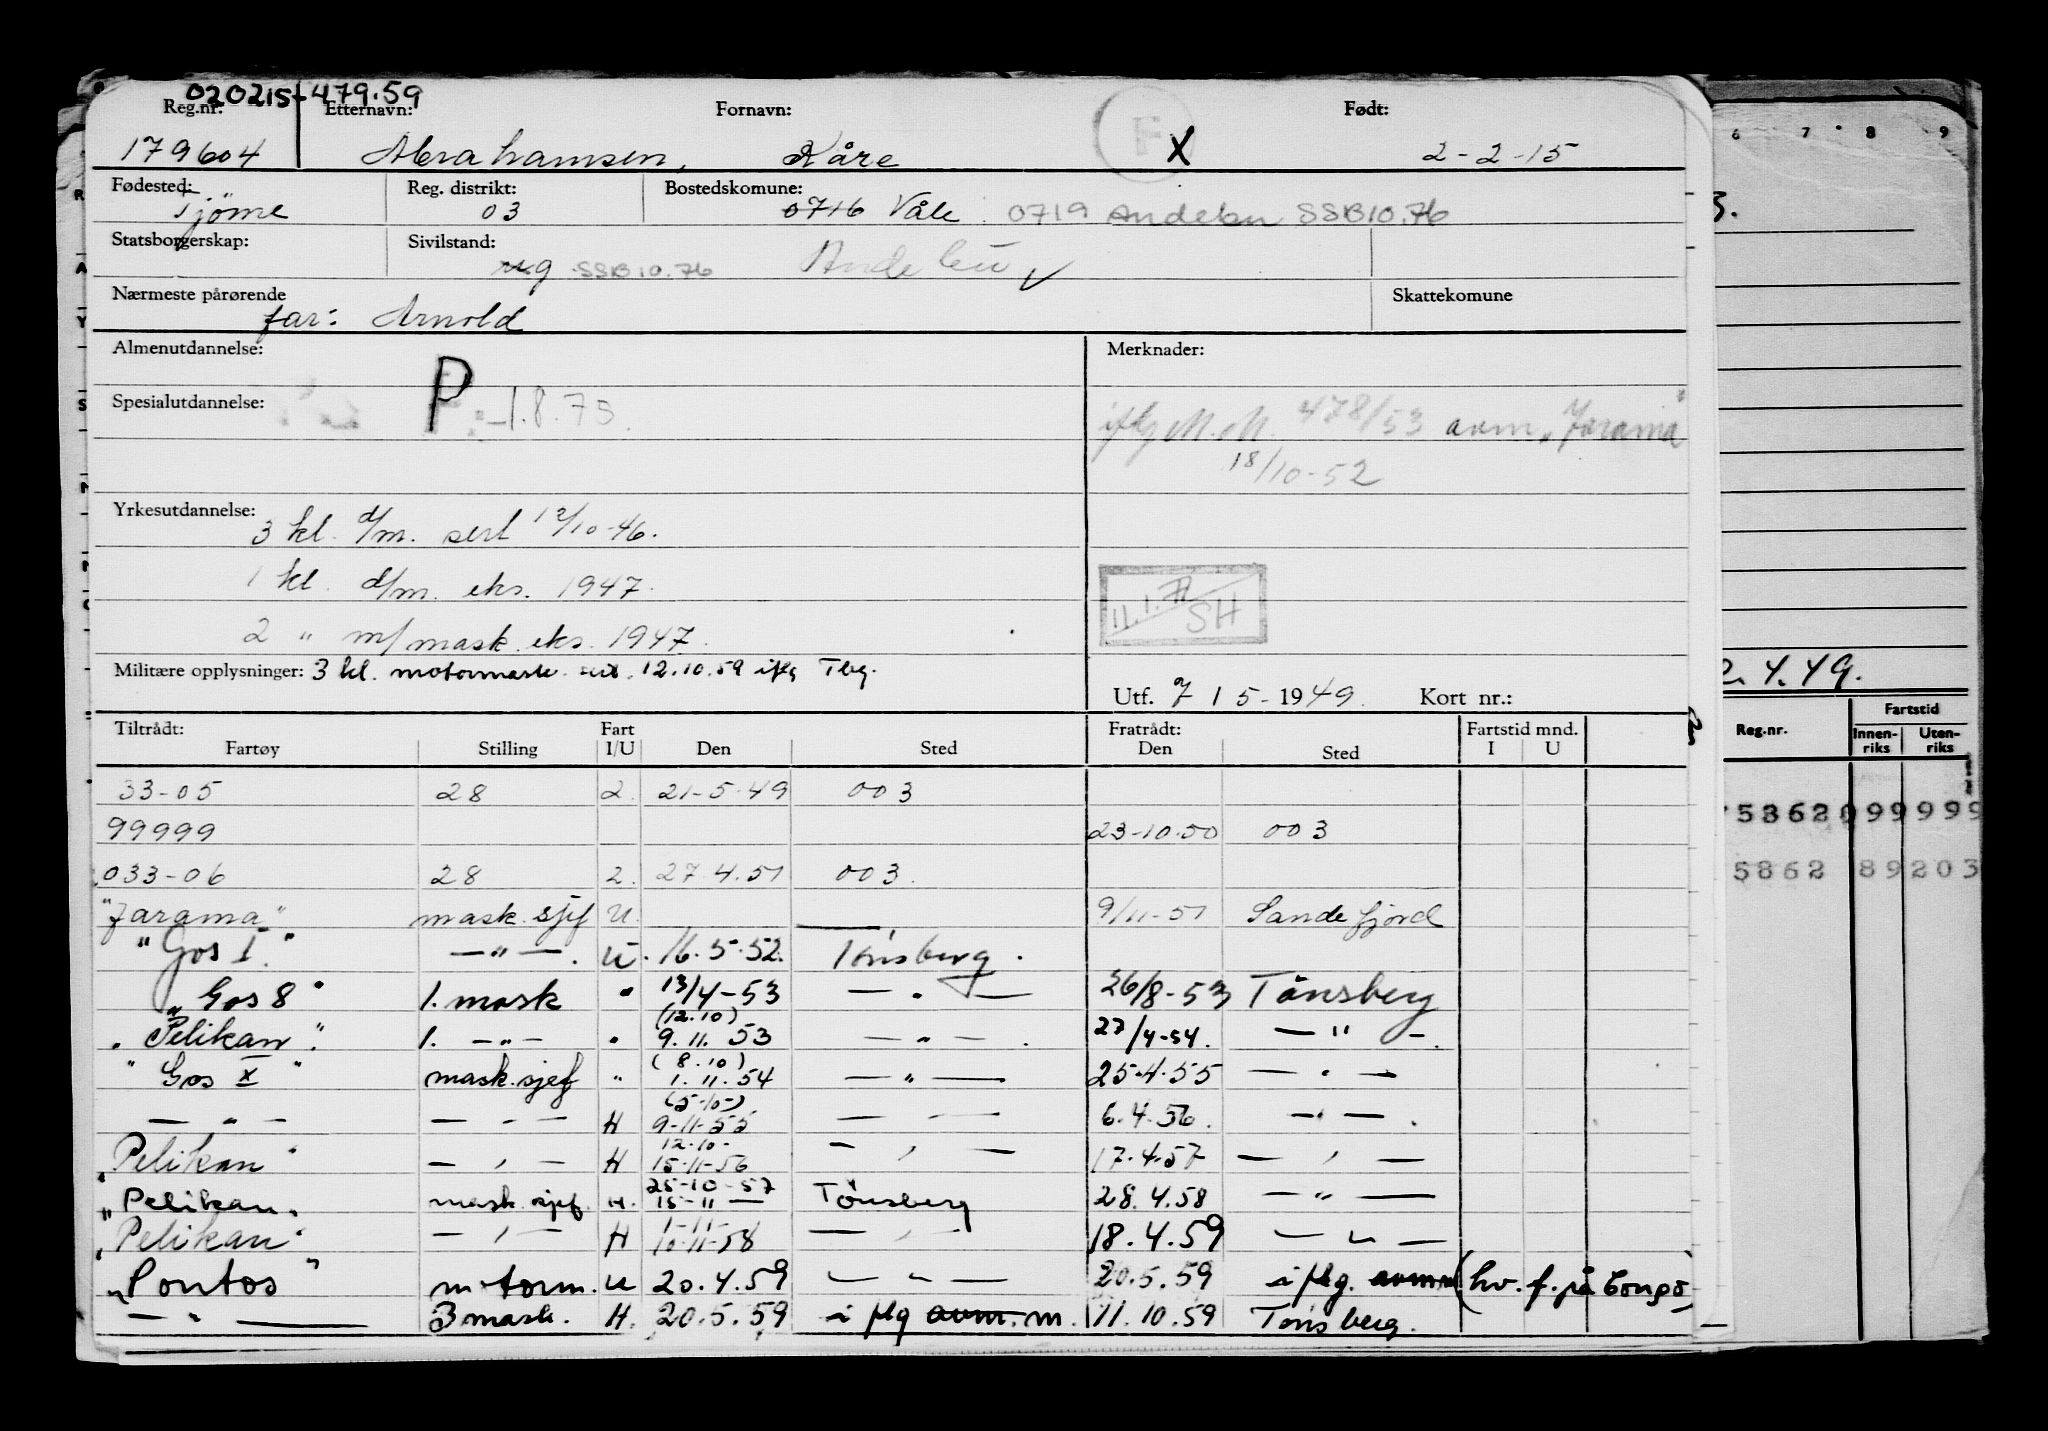 020215-479.59
Reg.nr: Etternavn: Fornavn: Født:
179604 Abrahamsen, Kåre F X 2-2-15
Fødested: Reg. distrikt: Bostedskomune:
Tjöme 03 0716 Våle 0719 Andebu SSB10.76
Statsborgerskap: Sivilstand:
ug SSB10.76 Andebu ✓
Nærmeste pårørende Skattekomune
far: Arnold
Almenutdannelse: Merknader:
P
Spesialutdannelse: -1.8.75. iflg M.M. 478/53 avm. "Jarama"
18/10-52
Yrkesutdannelse:
3 kl. d/m. sert 12/10-46.
1 kl. d/m. eks. 1947.
11.1.71 SH
2 " m/mask. eks. 1947.
Militære opplysninger: 3 kl. motormask. sert. 12.10.59 iflg Tbg.
Utf. 7 / 5 - 1949. Kort nr.:
2.4.49.
Tiltrådt: Fart Fratrådt: Fartstid mnd.
Fartøy Stilling I/U Den Sted Den Sted I U
Reg.nr. Fartstid
Innen-riks Uten-riks
33-05 28 2. 21-5-49 003
99999 23-10.50 003
033-06 28 2. 27.4.51 003.
"Jarama" mask.sjef U. 9/11-51 Sandefjord
"Gos I." — " — . U. 16.5.52. Tönsberg.
"Gos 8" 1. mask " 13/4-53 — " — 26/8-53 Tånsberg
(12.10)
"Pelikan". 1. — " — " 9.11.53 — " — . 27/4-54. — " —.
(8.10)
"Gos X" mask.sjef " 1.11.54 — " — 25.4.55 — " —
(5-10-)
— " — — " — H 9-11-55 — — 6.4.56. — " — .
12-10-
"Pelikan" — " — H 15-11-56 — " — 17.4.57 — " —
25-10-57
"Pelikan" mask.sjef. H. 15-11 — Tönsberg 28.4.58 — " —
1-11-
"Pelikan" — " — H 10-11-58 — " — 18.4.59 — " —
"Pontos" m-torm. U 20.4.59 — " — 20.5.59 iflg. avmm (hv.f. på Congo)
— " — 3 mask. H. 20.5.59 iflg avm. m. 11.10.59 Tönsberg.
6 7 8 9
3.
53620 99999
5862 89203